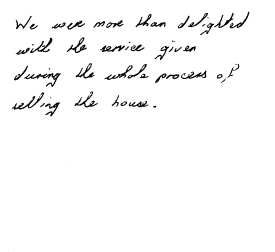 We were more than delighted
with the service given
during the whole process of
selling the house.